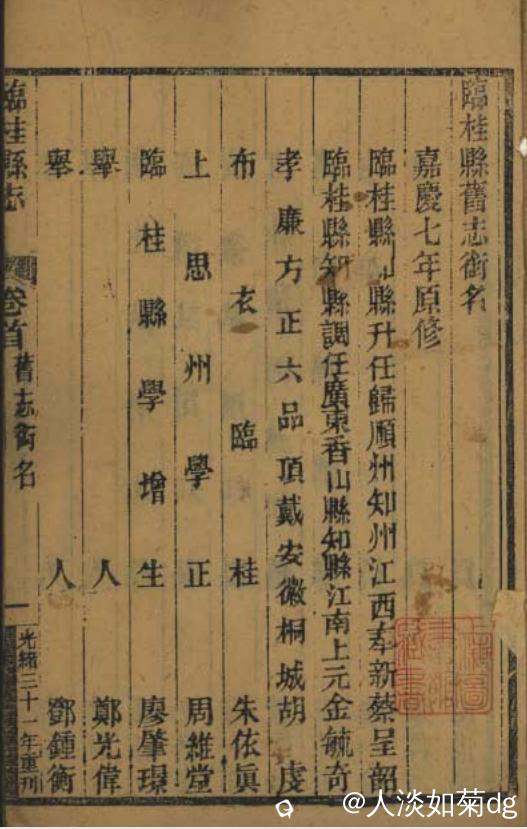 臨桂縣舊志銜名
嘉慶七年原修
臨桂縣知縣升任歸順州知州江西奉新蔡呈韶
臨桂縣知縣調任廣東香山縣知縣江南上元金毓奇
孝廉方正六品頂戴安徽桐城胡虔
布衣臨桂朱依真
上思州學正周維堂
臨桂縣學增生廖肇璟
舉人鄭光偉
舉人鄧鍾衡
臨桂縣志
卷首
舊志銜名
一
光緒三十一年重刊
@人淡如菊dg